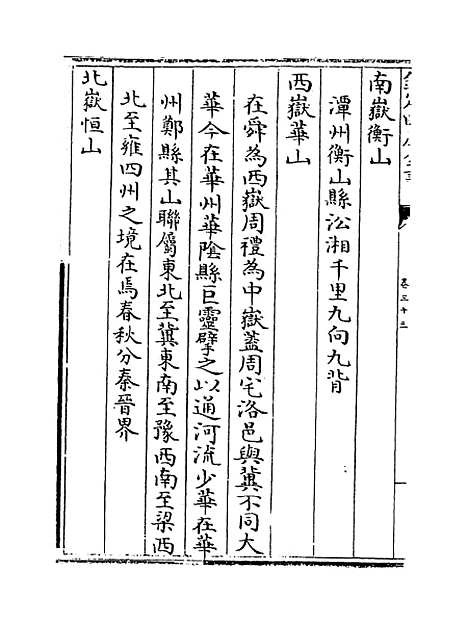 南嶽衡山
潭州衡山縣㳂湘千里九向九背
西嶽華山
在舜為西嶽周禮為中嶽蓋周宅洛邑與冀不同大
華今在華州華陰縣巨靈擘之以通河流少華在華
州鄭縣其山聯屬東北至冀東南至豫西南至梁西
北至雍四州之境在焉春秋分秦晉界
北嶽恒山
卷三十三